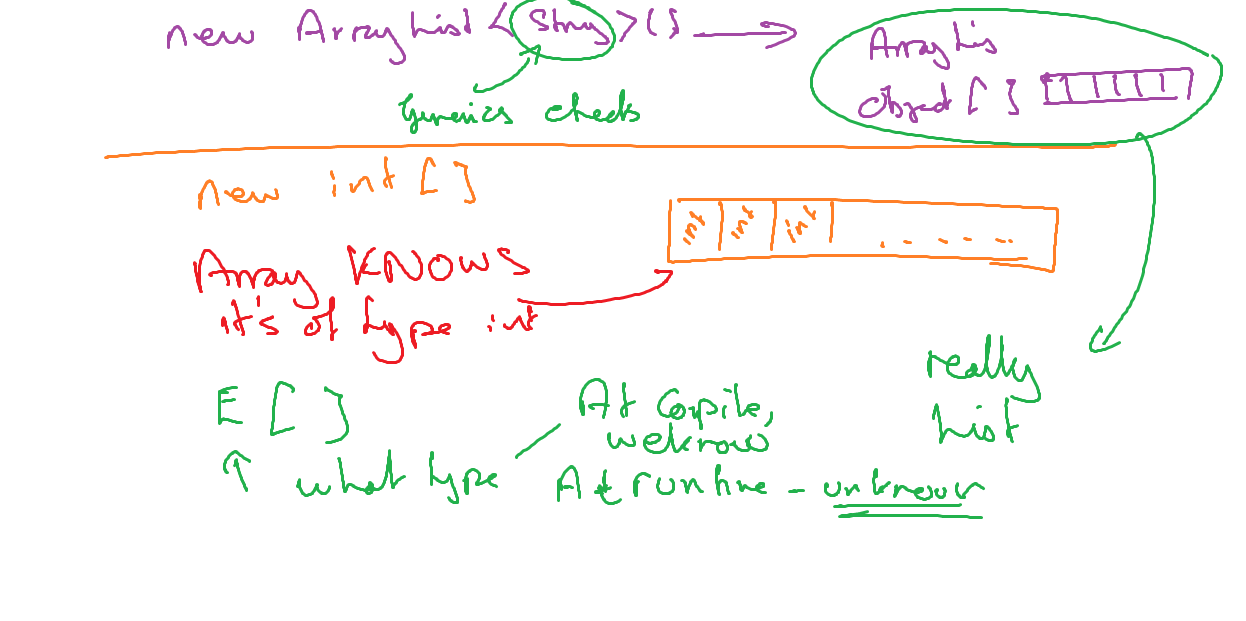 new ArrayList <String>()
ArrayLis
Object [ ]
Generics checks
new int [ ]
int int int . . . . .
Array KNOWS
it's of type int
E [ ]
what type
At Compile,
we know
At runtime - unknown
really
List